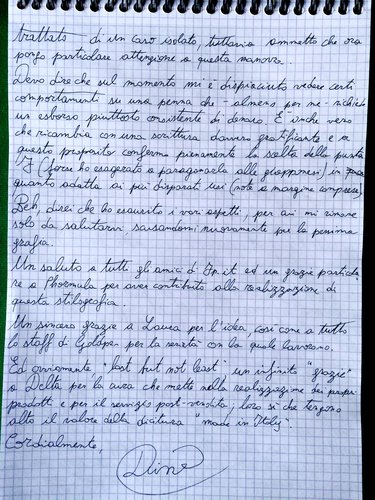 trattato di un caso isolato, tuttavia ammetto che ora
porgo particolare attenzione a questa manovra.
Devo dire che sul momento mi è dispiaciuto vedere certi
comportamenti su una penna che - almeno per me - richiede
un esborso piuttosto consistente di denaro. È anche vero
che ricambia con una scrittura davvero gratificante e a
questo proposito confermo pienamente la scelta della punta
F (forse ho esagerato a paragonarla alle giapponesi) in
quanto adatta ai più disparati usi (note a margine comprese).
Beh, direi che ho esaurito i vari aspetti, per cui mi rimane
solo da salutarvi, scusandomi nuovamente per la pessima
grafia.
Un saluto a tutti gli amici di Fp.it ed un grazie particola
re a Phormula per aver contribuito alla realizzazione di
questa stilografica.
Un sincero grazie a Laura per l'idea così come a tutto
lo staff di Goldpen per la serietà con la quale lavorano.
Ed ovviamente, "last but not least" un infinito "grazie"
a Delta per la cura che mette nella realizzazione dei propri
prodotti e per il servizio post-vendita; loro sì che tengono
alto il valore della dicitura "made in Italy".
Cordialmente,